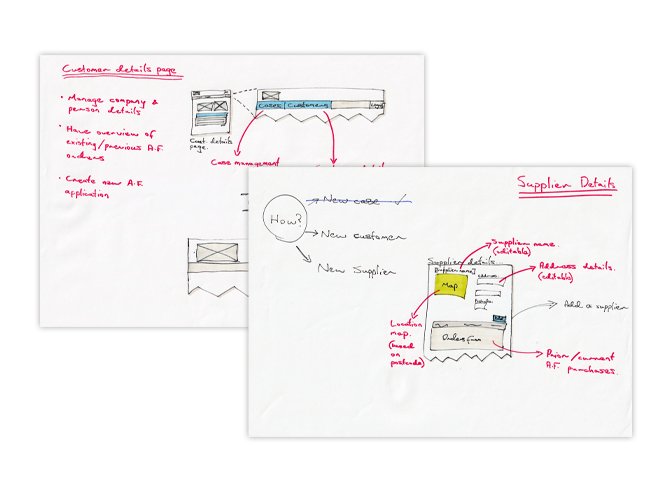 Customer details page
• Manage company &
person details
• Have overview of
existing/previous A.F.
orders
• Create new A.F.
application
Cases
Customers
Cust. details
page.
Case management
Supplier Details
How?
New case ✓
New customer
New Supplier
Supplier name.
(editable)
Supplier details...
[Supplier name]
Map
Address details.
(editable)
Add a supplier
Location
map.
(based
on
postcode)
Orders from
Prior/current
A.F. purchases.